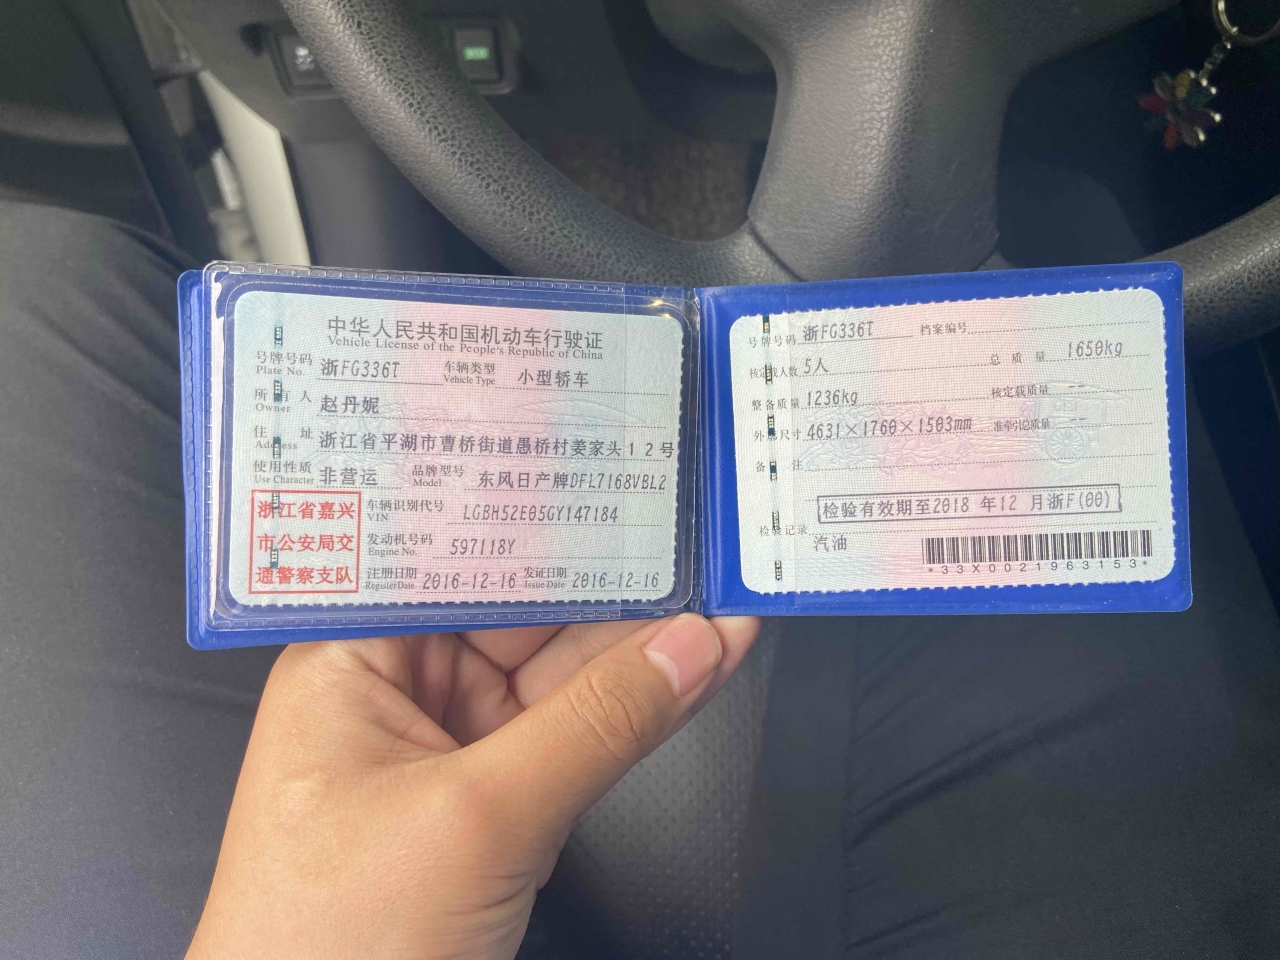 中华人民共和国机动车行驶证
Vehicle License of the People's Republic of China
号牌号码 浙FG336T 车辆类型 小型轿车
Plate No. Vehicle Type
所有人 赵丹妮
Owner
住址 浙江省平湖市曹桥街道愚桥村姜家头12号
Address
使用性质 非营运 品牌型号 东风日产牌DFL7168VBL2
Use Character Model
浙江省嘉兴
市公安局交
通警察支队
车辆识别代号 LGBH52E05GY147184
VIN
发动机号码 597118Y
Engine No.
注册日期 2016-12-16 发证日期 2016-12-16
Register Date Issue Date
号牌号码 浙FG336T 档案编号
核定载人数 5人 总质量 1650kg
整备质量 1236kg 核定载质量 --
外廓尺寸 4631×1760×1503mm 准牵引总质量 --
备注
检验有效期至2018年12月浙F(00)
检验记录
汽油
*33X0021963153*